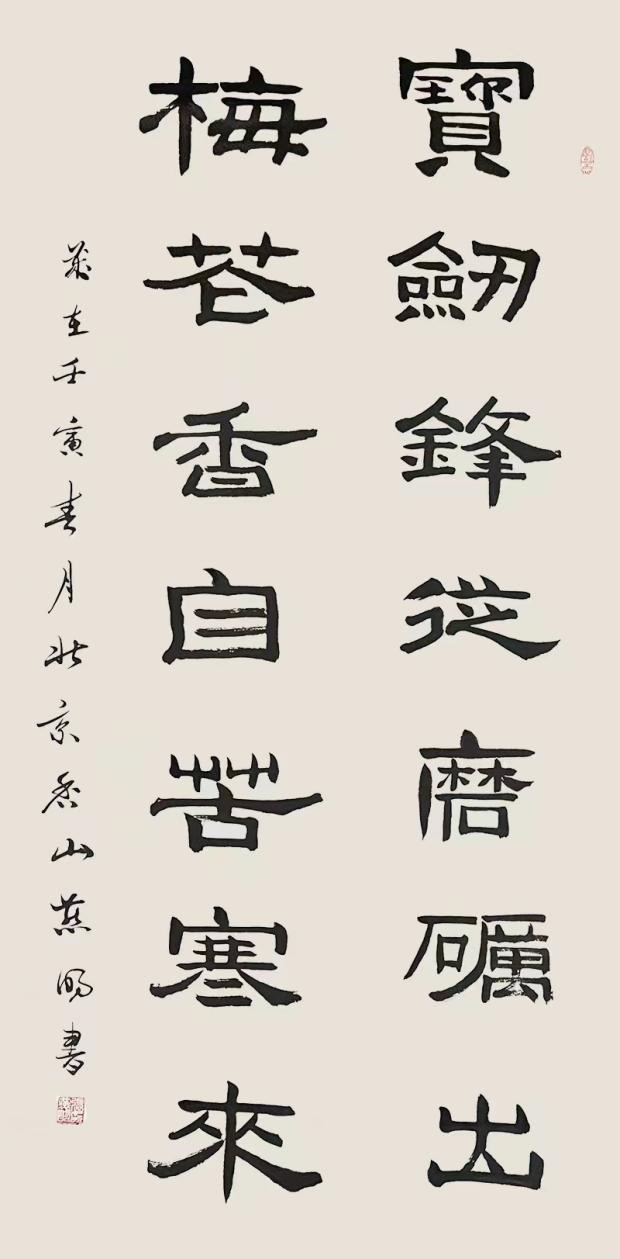 寶劒鋒從磨礪出
梅花香自苦寒來
歲在壬寅春月北京香山燕鳴書